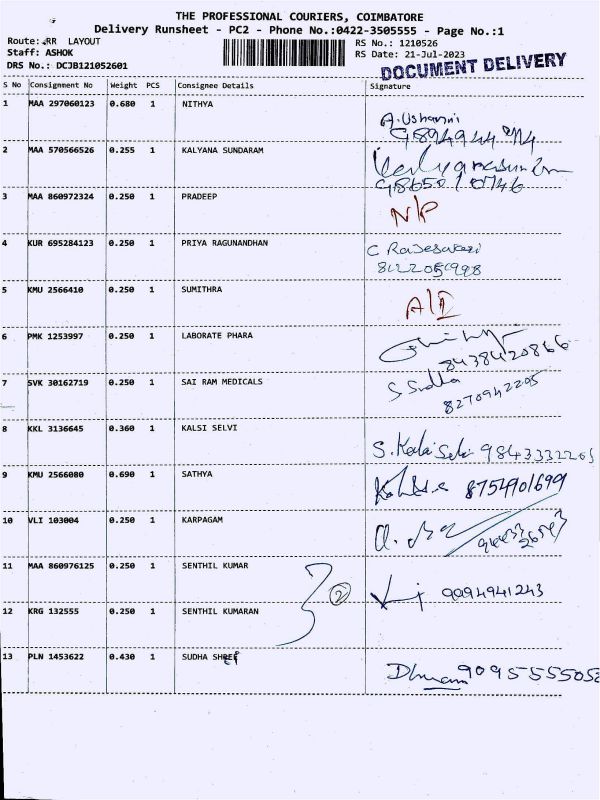 THE PROFESSIONAL COURIERS, COIMBATORE
Delivery Runsheet - PC2 - Phone No.:0422-3505555 - Page No.:1
Route: RR LAYOUT
RS No.: 1210526
Staff: ASHOK
RS Date: 21-Jul-2023
DRS No.: DCJB121052601
DOCUMENT DELIVERY
S No Consignment No Weight PCS Consignee Details Signature
1 MAA 297060123 0.680 1 NITHYA
2 MAA 570566526 0.255 1 KALYANA SUNDARAM
3 MAA 860972324 0.250 1 PRADEEP N/P
4 KUR 695284123 0.250 1 PRIYA RAGUNANDHAN
5 KMU 2566410 0.250 1 SUMITHRA
6 PMK 1253997 0.250 1 LABORATE PHARA
8438420866
7 SVK 30162719 0.250 1 SAI RAM MEDICALS
8270942205
8 KKL 3136645 0.360 1 KALSI SELVI
S. Kalai Selvi
9 KMU 2566080 0.690 1 SATHYA 8754901699
10 VLI 103004 0.250 1 KARPAGAM
11 MAA 860976125 0.250 1 SENTHIL KUMAR
2 9094941243
12 KRG 132555 0.250 1 SENTHIL KUMARAN
13 PLN 1453622 0.430 1 SUDHA